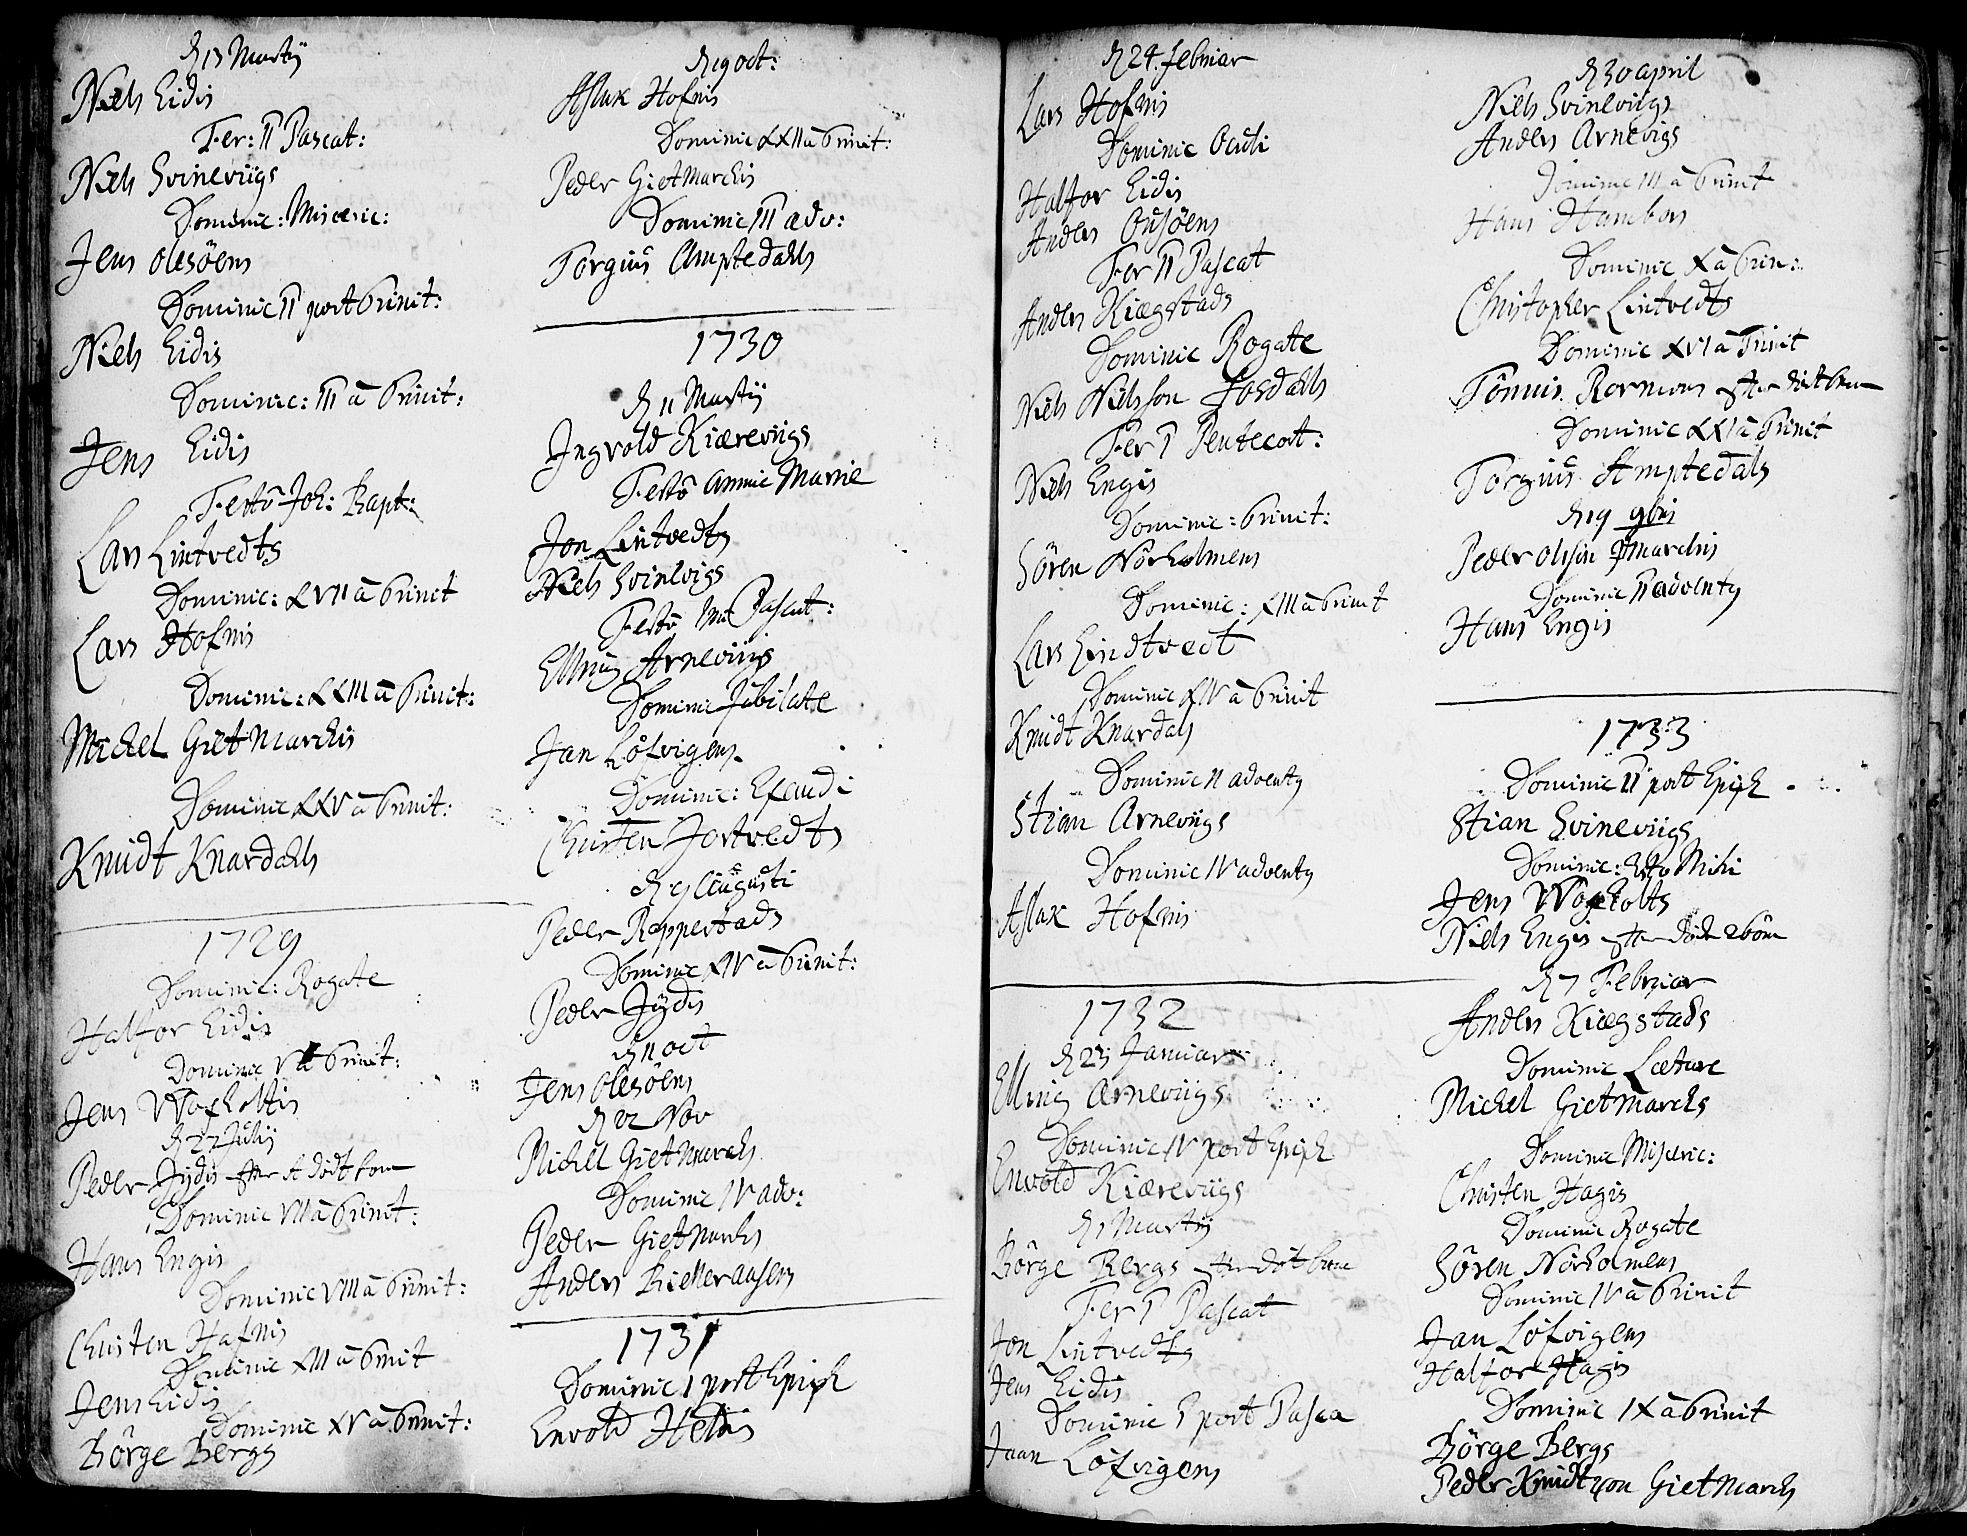 d 13 Martij
Niels Eidis
Fer: II Pascat:
Niels Svineviigs
Dominic: Miseric:
Jens Olesöens
Dominic II post Trinit:
Niels Eidis
Dominic: III a Trinit:
Jens Eidis
Festo Joh: Bapt:
Lars Lintvedts
Dominic: XVII a Trinit
Lars Hofnis
Dominic: XXIII a Trinit:
Michel Gietmarchis
Dominic XXV a Trinit:
Knudt Knardahls
1729
Dominic: Rogate
Halfor Eidis
Dominic V a Trinit:
Jens Woxholtis
d 27 Julij
Peder Jÿdis efter et dödt barn
Dominic VII a Trinit:
Hans Engis
Dominic VIII a Trinit:
Christen Hafnis
Dominic XIII a Trinit
Jens Eidis
Dominic XV a Trinit:
Börge Bergs
d 19 oct:
Aslak Hofnis
Dominic XXII a Trinit:
Peder Gietmarchis
Dominic III adv:
Torgius Amptedahls
1730
d 11 Martij
Ingvold Kiæreviigs
Festo Annuc Mariæ
Jon Lintvedts
Niels Svinevigs
Festo III Pascat:
Elling Arneviigs
Dominic Jubilate
Jan Löfvigens
Dominic: Exaudi
Christen Jortvedts
d 9 Augusti
Peder Roppestads
Dominic XIV a Trinit:
Peder Jÿdis
d 11 oct
Jens Olesöens
d 22 Nov
Michel Gietmarchs
Dominic IV adv:
Peder Gietmarchs
Anders Rielleraasens
1731
Dominic I post Epiph
Envold Helds
d 24 Februar
Lars Hofnis
Dominic Oculi
Halfor Eidis
Anders Ousöens
Fer II Pascat
Anders Kiægstads
Dominic Rogate
Niels Nielsson Fosdahls
Fer I Pentecost:
Niels Engis
Dominic: Trinit:
Sören Nörholmens
Dominic: XIII a Trinit
Lars Lindtvedt
Dominic XIV a Trinit
Knudt Knardals
Dominic II adventy
Stian Arneviigs
Dominic IV adventy
Aslak Hofnis
1732
d 23 Januar
Elling Arneviigs
Dominic IV post Epiph
Envold Kiæreviigs
d 1 Martij
Börge Bergs efter dödt barn
Fer I Pascat
Jon Lintvedts
Jens Eidis
Dominic I post Pasca
Jaan Löfvigens
d 30 april
Niels Svineviigs
Anders Arnevigs
Dominic III a Trinit
Hans Hambors
Dominic X a Trin:
Christopher Lintvedts
Dominic XVI a Trinit
Tönnis Rormons efter dödt barn
Dominic XXI a Trinit
Torgius Amptedals
d 19 9bris
Peder Olssön Gmarchis
Dominic II adventy
Hans Engis
1733
Dominic II post Epiph
Stian Svineviigs
Dominic: Esto Mihi
Jens Woxholts
Niels Engis efter döde 2 börn
d 7 Februar
Anders Kiægstads
Dominic Lætare
Michel Gietmarchs
Dominic Miseric:
Christen Hagis
Dominic Rogate
Sören Nörholmens
Dominic IV a Trinit
Jan Löfvigens
Halfor Hagis
Dominic IX a Trinit
Börge Bergs
Peder Knudtzon Gietmarchs